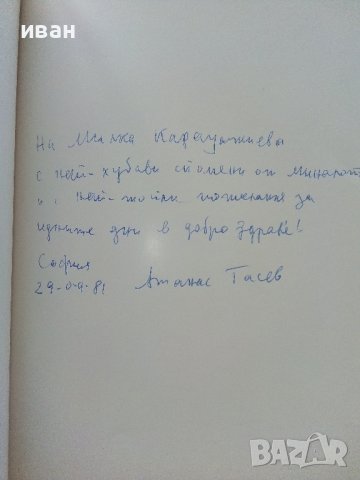 иван
На Милка
с най-хубави спомени от миналото
и с най-топли пожелания за
идните дни в добро здраве!
София
29-09-81 Атанас Тасев
BAZAR